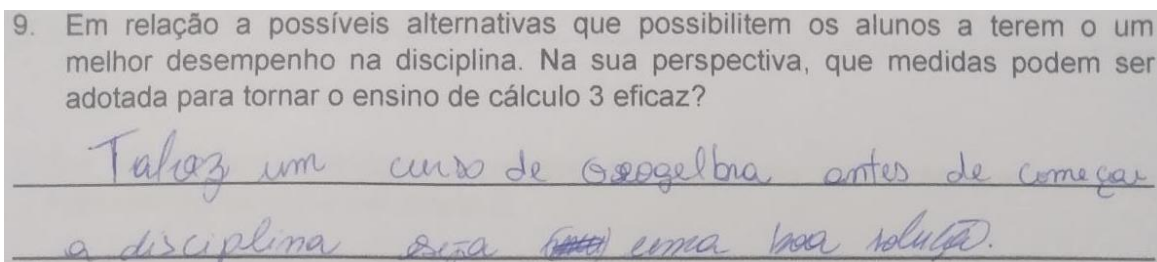 9. Em relação a possíveis alternativas que possibilitem os alunos a terem o um
melhor desempenho na disciplina. Na sua perspectiva, que medidas podem ser
adotada para tornar o ensino de cálculo 3 eficaz?
Talvez um curso de Geogelbra antes de começar
a disciplina seria uma boa solução.